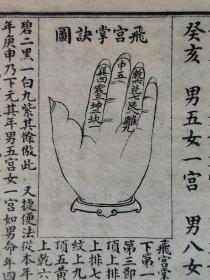 癸亥 男五女 宮 男八女
飛宮掌訣圖
乾六兌七艮八離九
中五
巽四震三坤二坎一
飛宮掌
下第一
第三節
頂上排
上排七
紋上九
頂五黃
上乾六
碧二黑一白九紫其餘倣此又捷便法從本年
年庚申乃下元其年男五宮女一宮如男命年四